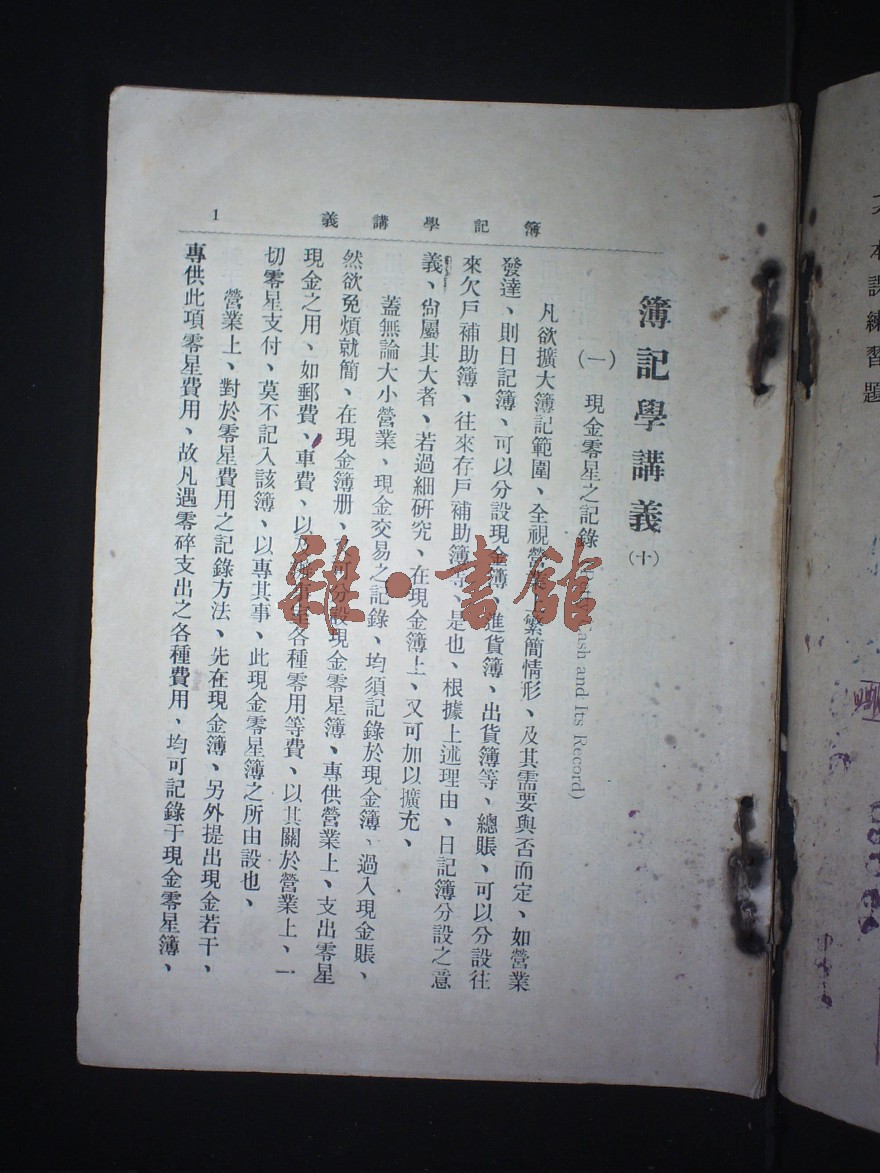 簿記學講義
1
簿記學講義(十)
(一) 現金零星之記錄 Cash and Its Record)
凡欲擴大簿記範圍、全視營業上繁簡情形、及其需要與否而定、如營業
發達、則日記簿、可以分設現金簿、進貨簿、出貨簿等、總賬、可以分設往
來欠戶補助簿、往來存戶補助簿等、是也、根據上述理由、日記簿分設之意
義、尙屬其大者、若過細硏究、在現金簿上、又可加以擴充、
蓋無論大小營業、現金交易之記錄、均須記錄於現金簿、過入現金賬、
然欲免煩就簡、在現金簿册、可分設現金零星簿、專供營業上、支出零星
現金之用、如郵費、車費、以及各種零用等費、以其關於營業上、一
切零星支付、莫不記入該簿、以專其事、此現金零星簿之所由設也、
營業上、對於零星費用之記錄方法、先在現金簿、另外提出現金若干、
專供此項零星費用、故凡遇零碎支出之各種費用、均可記錄于現金零星簿、
雜·書館
本課練習題